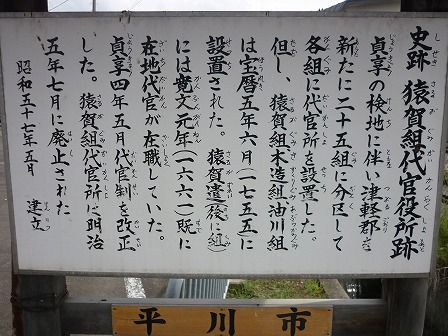 史跡 猿賀組代官役所跡
貞享の検地に伴い津軽郡を
新たに二十五組に分区して
各組に代官所を設置した。
但し、猿賀組木造組油川組
は宝暦五年六月(一七五五に
設置された。猿賀遣(後に組)
には寛文元年(一六六一)既に
在地代官が在職していた。
貞享四年五月代官制を改正
した。猿賀組代官所は明治
五年七月に廃止された
昭和五十七年五月 建立
平川市